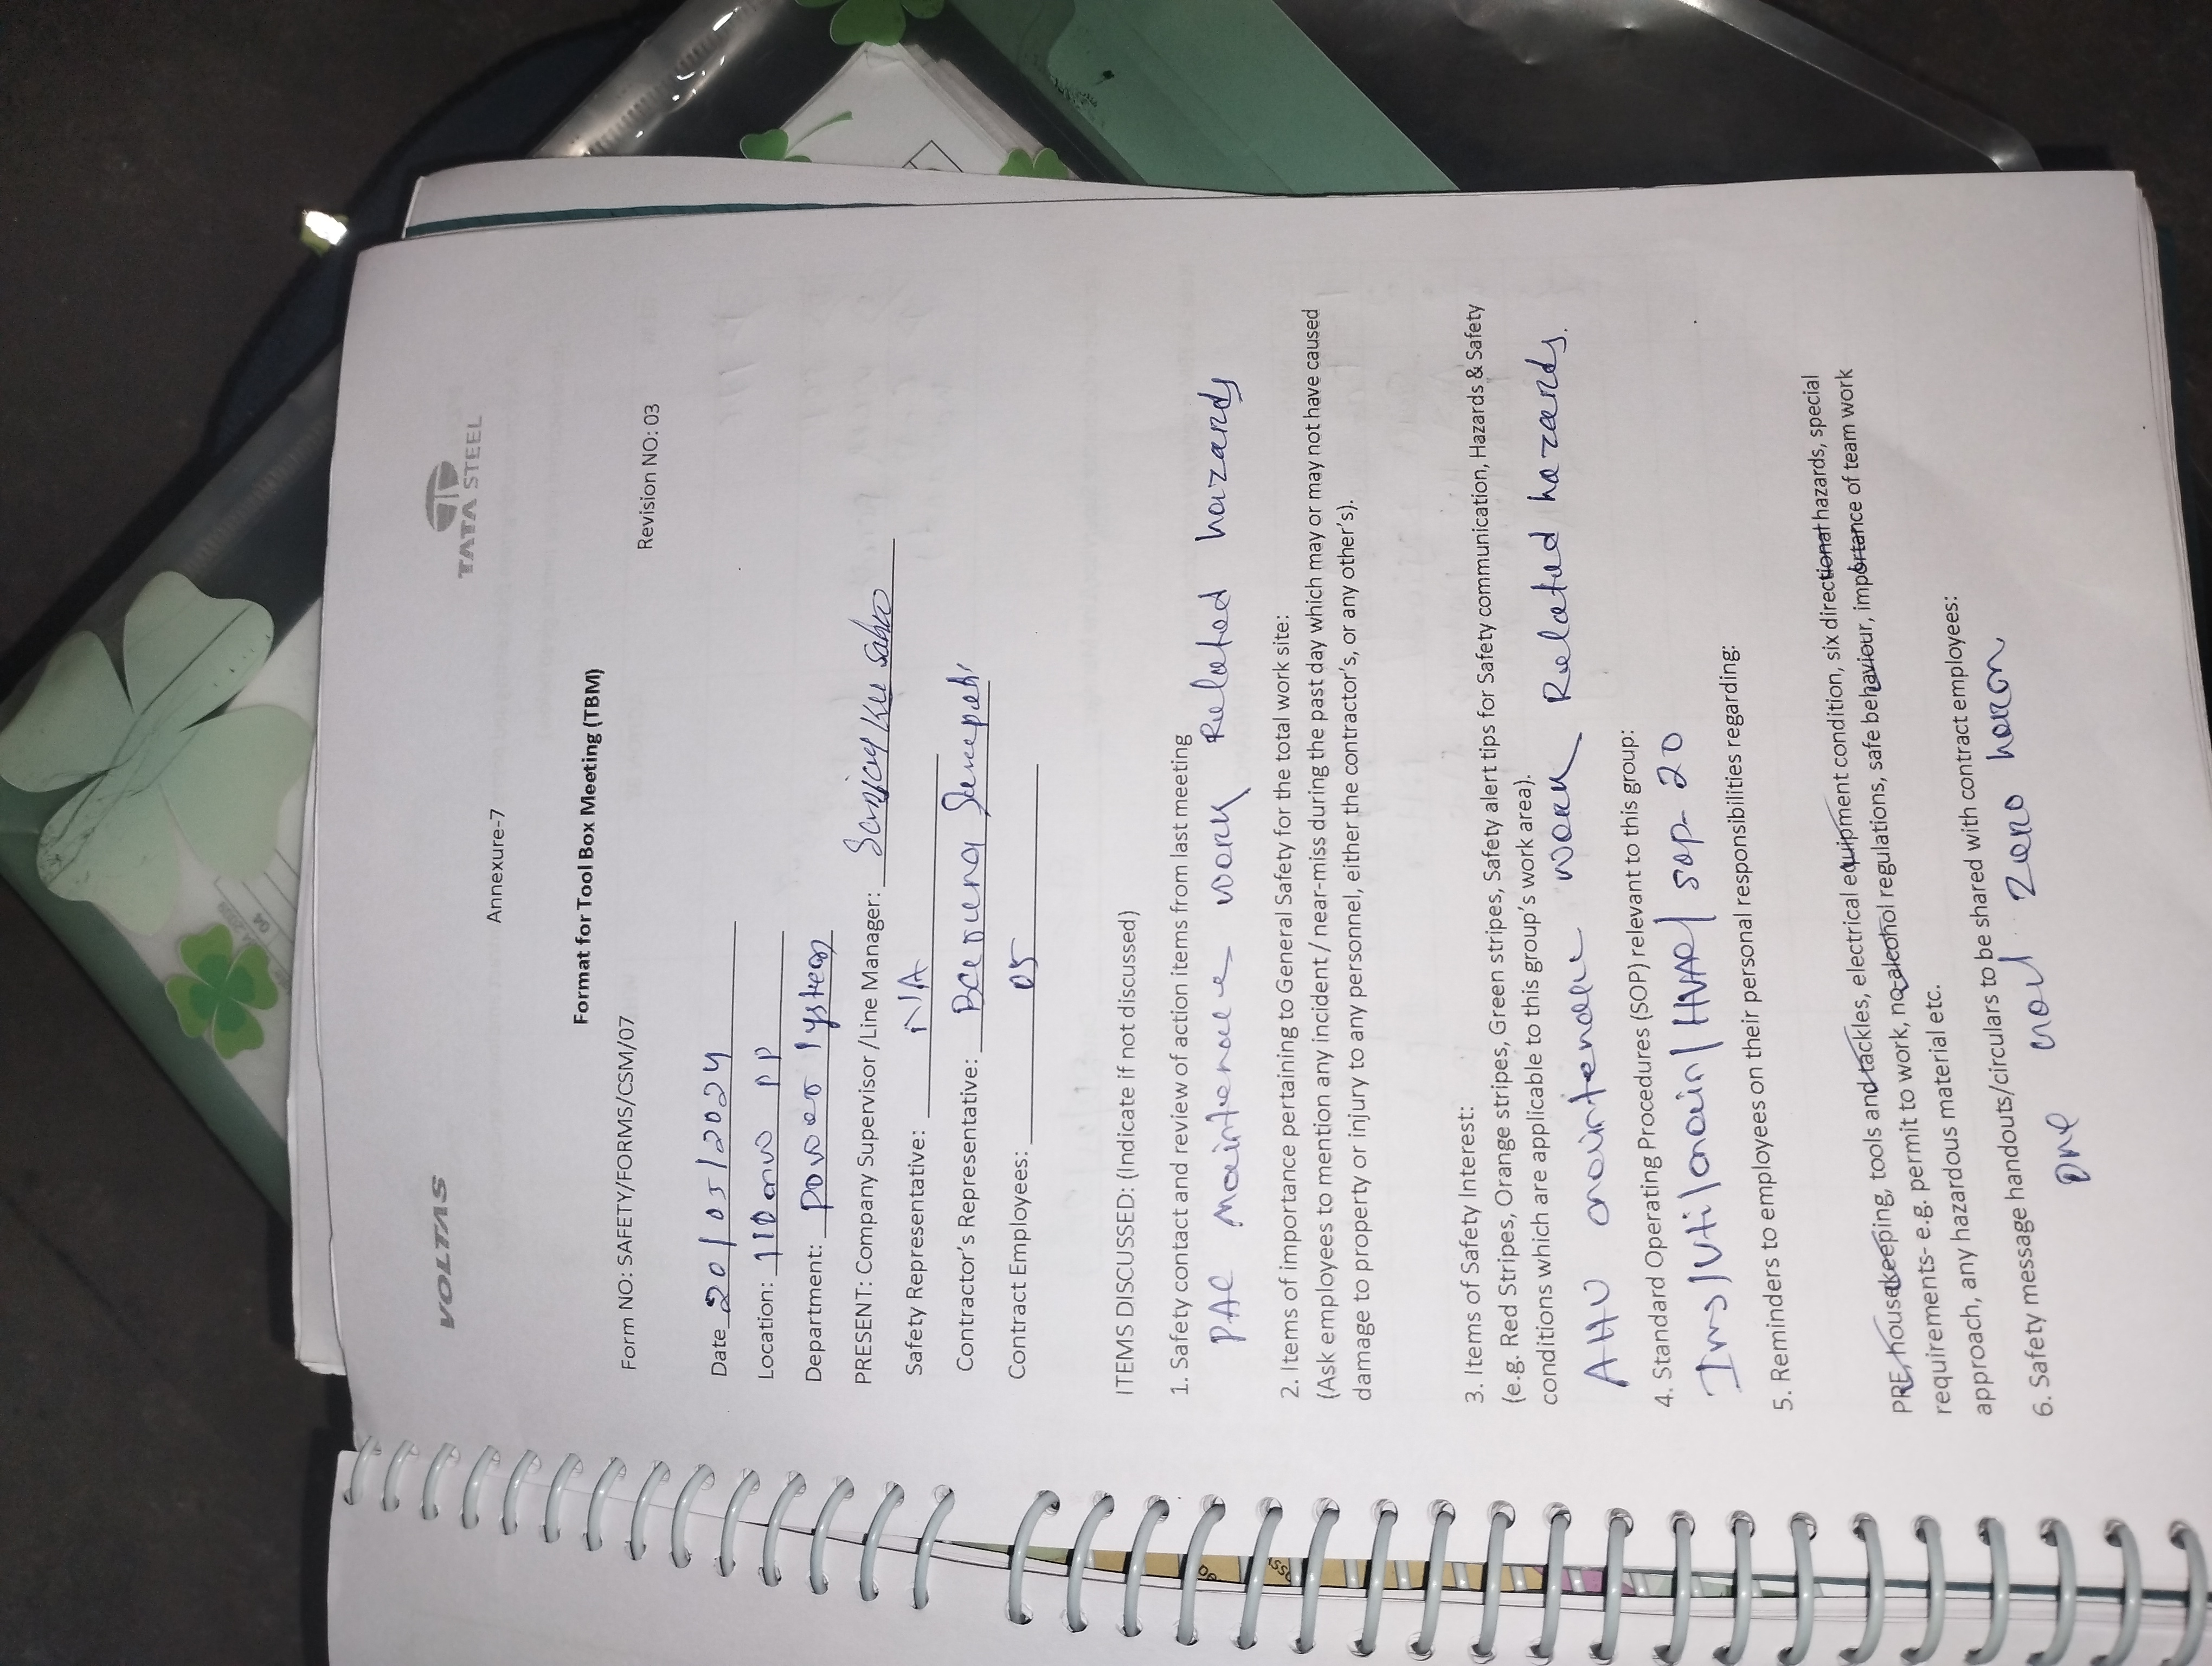 VOLTAS
TATA STEEL
Annexure-7
Format for Tool Box Meeting (TBM)
Form NO: SAFETY/FORMS/CSM/07 Revision NO: 03
Date 20/05/2024
Location: PP
Department: Power System
PRESENT: Company Supervisor /Line Manager: Sanjay Sahoo
Safety Representative: N/A
Contractor's Representative:
Contract Employees: 05
ITEMS DISCUSSED: (Indicate if not discussed)
1. Safety contact and review of action items from last meeting
PAC maintenance work Related hazards
2. Items of importance pertaining to General Safety for the total work site:
(Ask employees to mention any incident / near-miss during the past day which may or may not have caused
damage to property or injury to any personnel, either the contractor's, or any other's).
3. Items of Safety Interest:
(e.g. Red Stripes, Orange stripes, Green stripes, Safety alert tips for Safety communication, Hazards & Safety
conditions which are applicable to this group's work area).
AHU maintenance work Related hazards.
4. Standard Operating Procedures (SOP) relevant to this group:
SOP-20
5. Reminders to employees on their personal responsibilities regarding:
PRE, housekeeping, tools and tackles, electrical equipment condition, six directional hazards, special
requirements- e.g. permit to work, no-alcohol regulations, safe behaviour, importance of team work
approach, any hazardous material etc.
6. Safety message handouts/circulars to be shared with contract employees:
Zero harm